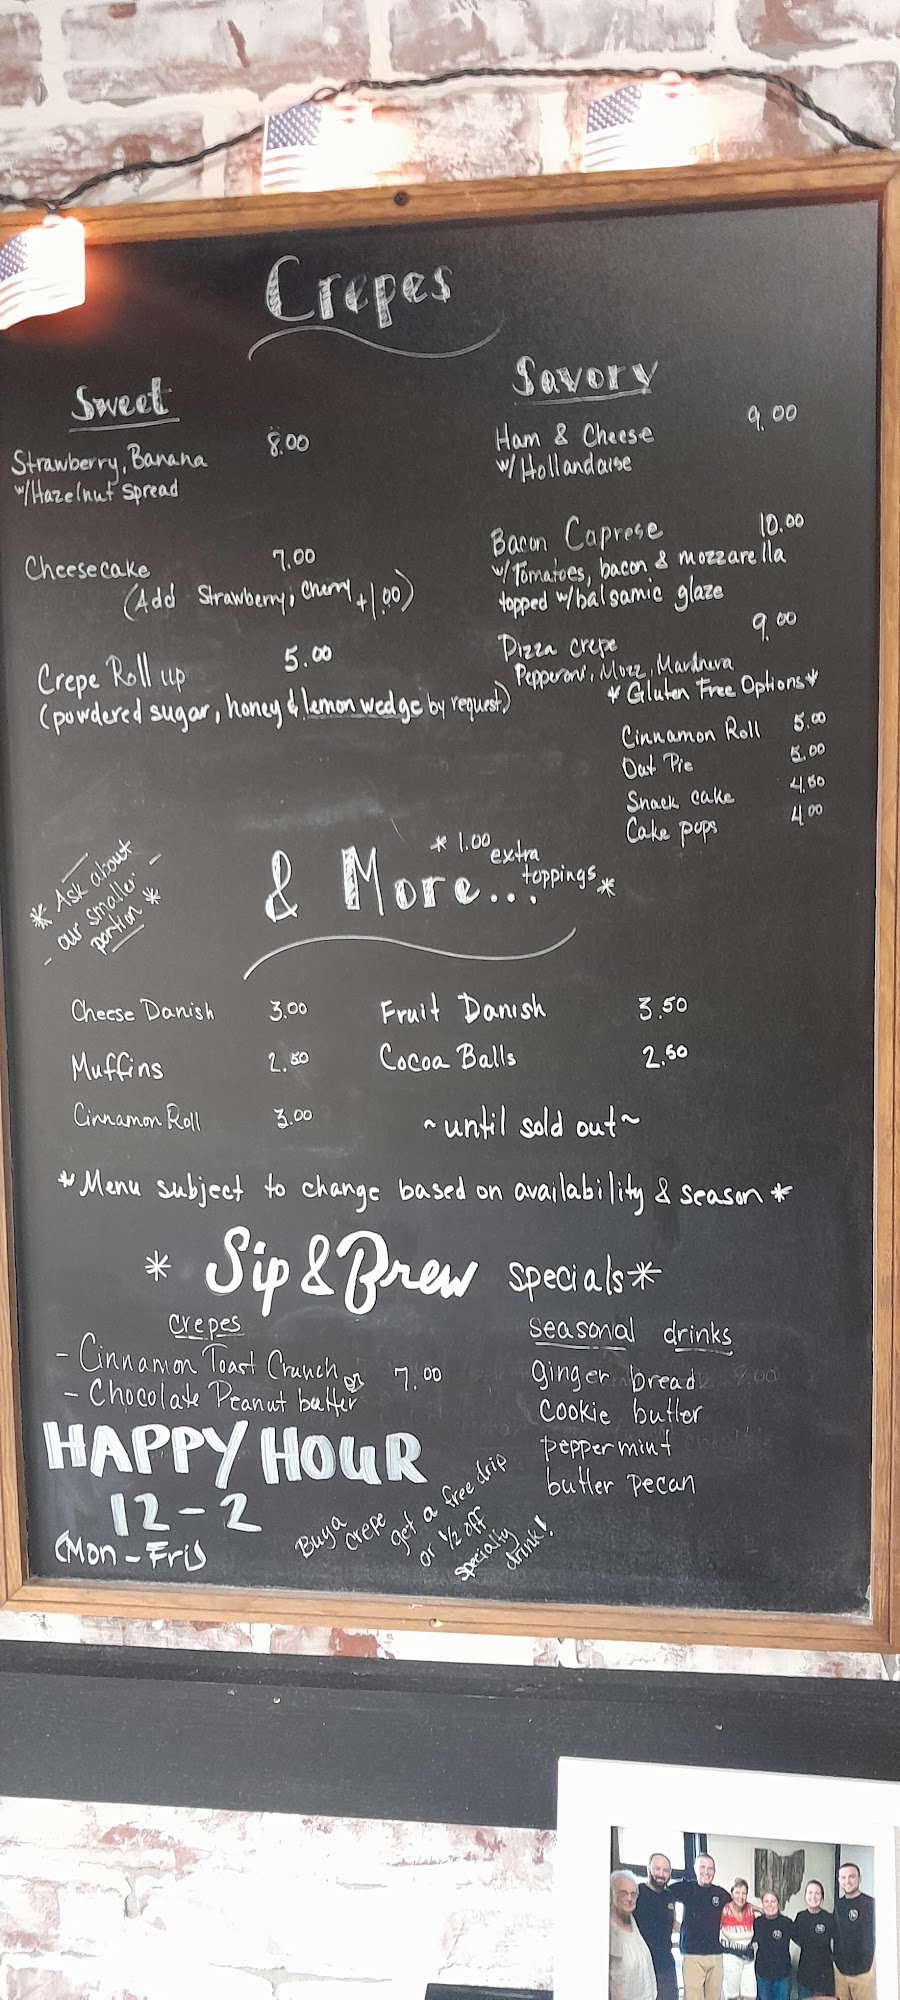 Crepes
Sweet
Strawberry, Banana 8.00
w/Hazelnut spread
Cheesecake 7.00
(Add Strawberry, Cherry +1.00)
Crepe Roll up 5.00
(powdered sugar, honey & lemon wedge by request)
Savory
Ham & Cheese 9.00
w/Hollandaise
Bacon Caprese 10.00
w/Tomatoes, bacon & mozzarella
topped w/balsamic glaze
Pizza crepe 9.00
Pepperoni, Mozz, Marinera
* Gluten Free Options*
Cinnamon Roll 5.00
Oat Pie 5.00
Snack cake 4.50
Cake pops 4.00
* Ask about
our smaller
portion *
& More...
* 1.00
extra
toppings *
Cheese Danish 3.00 Fruit Danish 3.50
Muffins 2.50 Cocoa Balls 2.50
Cinnamon Roll 3.00 ~until sold out~
*Menu subject to change based on availability & season*
* Sip & Brew specials*
crepes
- Cinnamon Toast Crunch or 7.00
- Chocolate Peanut butter
seasonal drinks
ginger bread
cookie butter
peppermint
butter pecan
HAPPY HOUR
12-2
(Mon-Fri)
Buy a
crepe
get a free drip
or 1/2 off
specialty
drink!